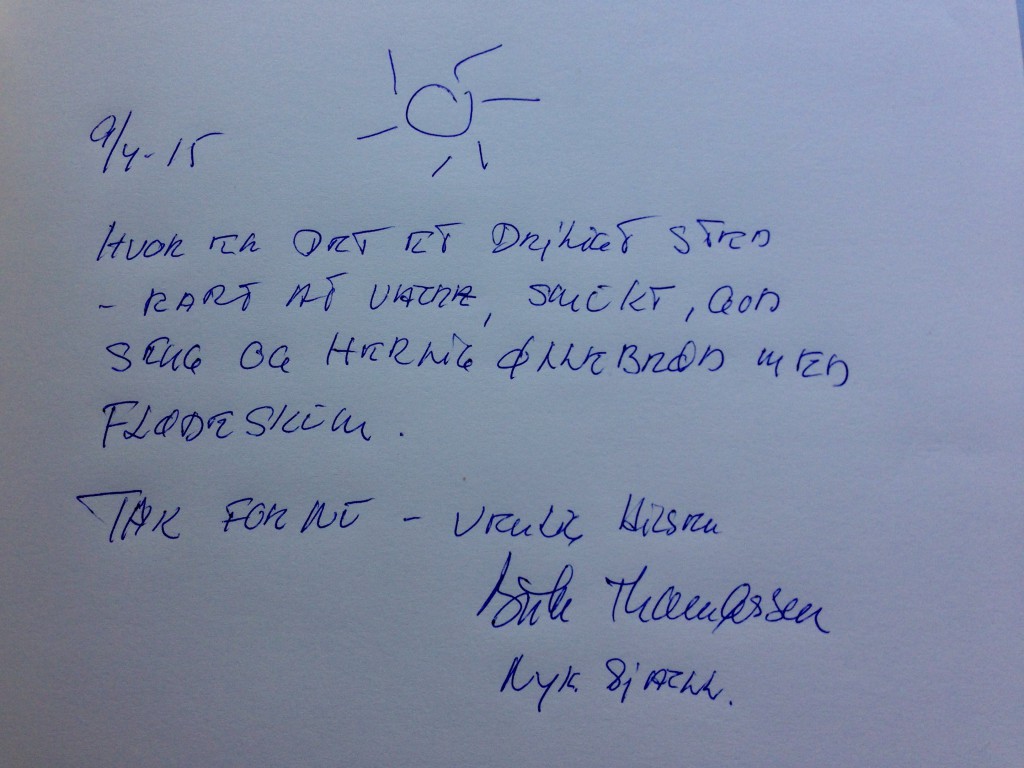 9/4-15
HVOR ER DET ET DEJLIGT STED
- RART AT VÆRE, SMUKT, GOD
SENG OG HERLIG ØLLEBRØD MED
FLØDESKUM.
TAK FOR ALT - VENLIG HILSEN
Thomassen
Nyk. Sjæll.